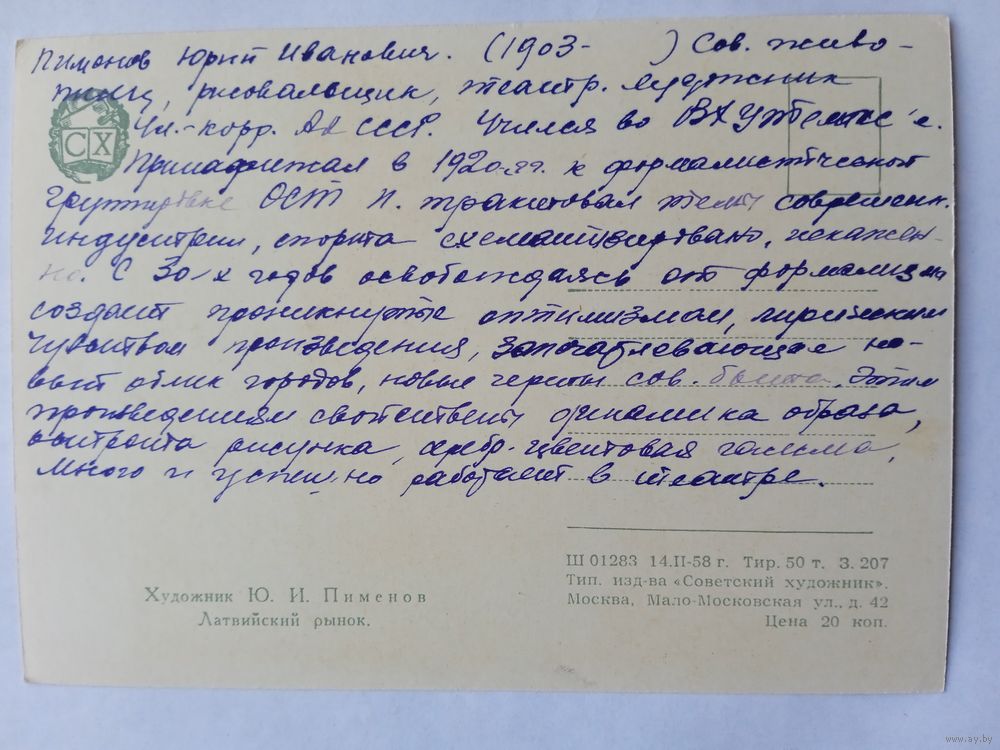 Пименов Юрий Иванович. (1903-      ) Сов. живо-
писец, рисовальщик, театр. художник
Чл.-корр. АХ СССР. Учился во ВХУТЕМАС'е.
Принадлежал в 1920-гг. к формалистической
группировке ОСТ П. трактовал темы современ.
индустрии, спорта схематизировано, искажен-
но. С 30-х годов освобождаясь от формализма
создаёт проникнутые оптимизмом, лирическим
чувством произведения, запечатлевающие но-
вый облик городов, новые черты сов. быта. Этим
произведениям свойственны динамика образа,
острота рисунка, серебр. цветовая гамма,
много и успешно работает в театре.
СХ
Художник Ю. И. Пименов
Латвийский рынок.
Ш 01283 14.II-58 г. Тир. 50 т. З. 207
Тип. изд-ва «Советский художник».
Москва, Мало-Московская ул., д. 42
Цена 20 коп.
www.ay.by